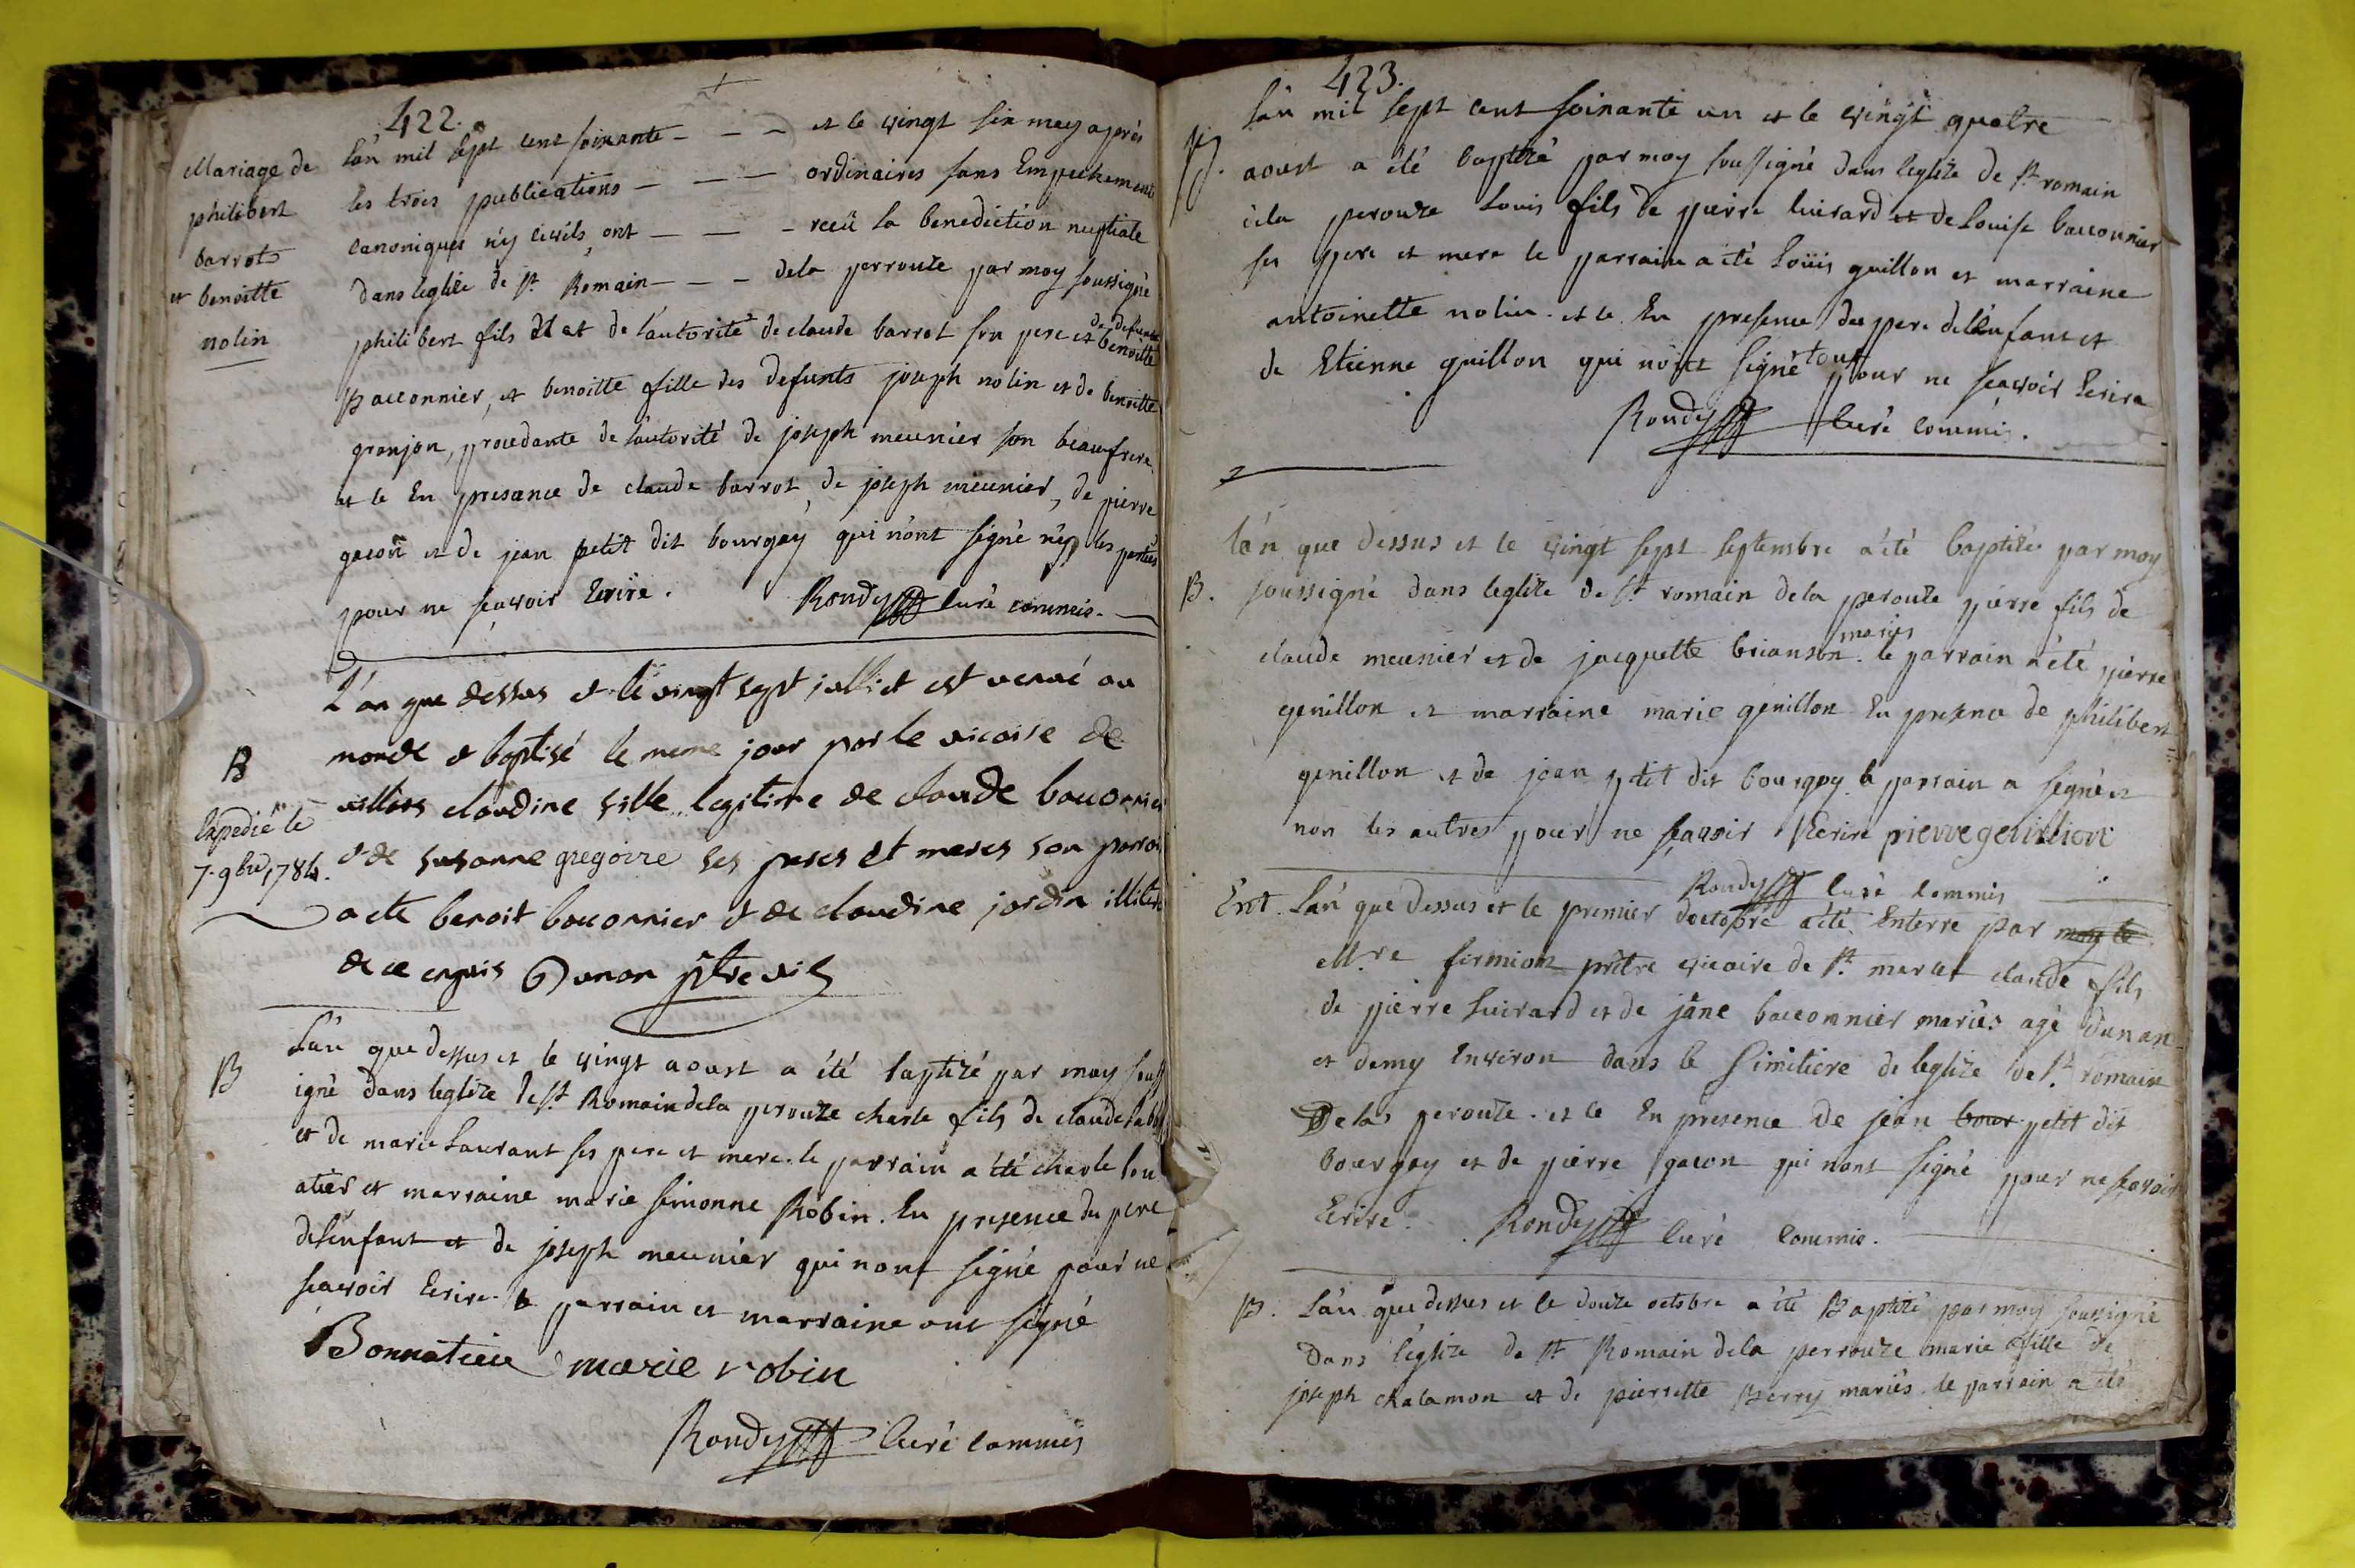 422.
Mariage de
philibert
barrot
et benoitte
nolin
L'an mil sept cent soixante - - - et le vingt six may apres
les trois publications - - - ordinaires sans Empechement
canoniques n'y civils ont - - - receü la benediction nuptiale
dans leglize de st Romain - - - dela perrouze par moy soussigné
philibert fils et de l'autorité de claude barrot son pere et de defunte benoitte
Bacconnier, et benoitte fille des defunts joseph nolin et de benoitte
granjon, procedante de l'autorité de joseph meunier son beaufrere
et ce En presance de claude barrot, de joseph meunier, de pierre
gacon et de jean petit dit bourgay qui n'ont signé n'y les parties
pour ne sçavoir Ecrire. Rondy curé commis.
B
Expedié le
7. 9bre 1784.
L'an que dessus et le vingt sept julliet est venue au
monde et baptisé le meme jour par le vicaire de
claudine fille legitime de claude bacconnier
et de susanne gregoire ses peres et meres son parrain
a ete benoit bacconnier et de claudine jordin illiteré
de ce enquis Dunan ptre vic
B
L'an que dessus et le vingt aoust a été baptizé par moy souss
igné dans leglize de st Romain dela perouze charle fils de claude
et de marie Laurant ses pere et mere. le parrain a été charle bon
atier et marraine marie simonne Robin. En presence du pere
de l'enfant et de joseph meunier qui n'ont signé pour ne
sçavoir Ecrire le parrain et marraine ont signé
Bonnatier marie robin
Rondy curé commis
423.
L'an mil sept cent soixante un et le vingt quatre
B. aoust a été baptizé par moy soussigné dans leglize de st romain
dela perouze Louis fils de pierre luirard et de Louise bacconnier
ses pere et mere le parrain a été Loüis guillon et marraine
antoinette nolin. et ce En presence du pere de l'enfant et
de Etienne guillon qui n'ont signé tous pour ne sçavoir Ecrire
Rondy curé commis.
l'an que dessus et le vingt sept septembre a été baptizé par moy
B. soussigné dans leglize de st romain dela perouze pierre fils de
claude meunier et de jacquette brianson mariés. le parrain a été pierre
genillon et marraine marie genillon En presence de philibert
genillon et de jean petit dit bourgay le parrain a signé et
non les autres pour ne sçavoir Ecrire pierre genillion
Rondy curé commis
Ent. L'an que dessus et le premier doctobre a été Enterre par moy le
Mre firmion prêtre vicaire de st marcel claude fils
de pierre Luirard et de jane bacconnier mariés agé d'un an
et demy Environ dans le simitiere de leglize de st romain
Dela perouze. et ce En presence de jean bour petit dit
bourgay et de pierre gacon qui n'ont signé pour ne sçavoir
Ecrire. Rondy curé commis.
B. L'an que dessus et le douze octobre a été Baptizé par moy soussigné
dans l'eglize de st Romain dela perrouze marie fille de
joseph chalamon et de pierrette Berry mariés. le parrain a été